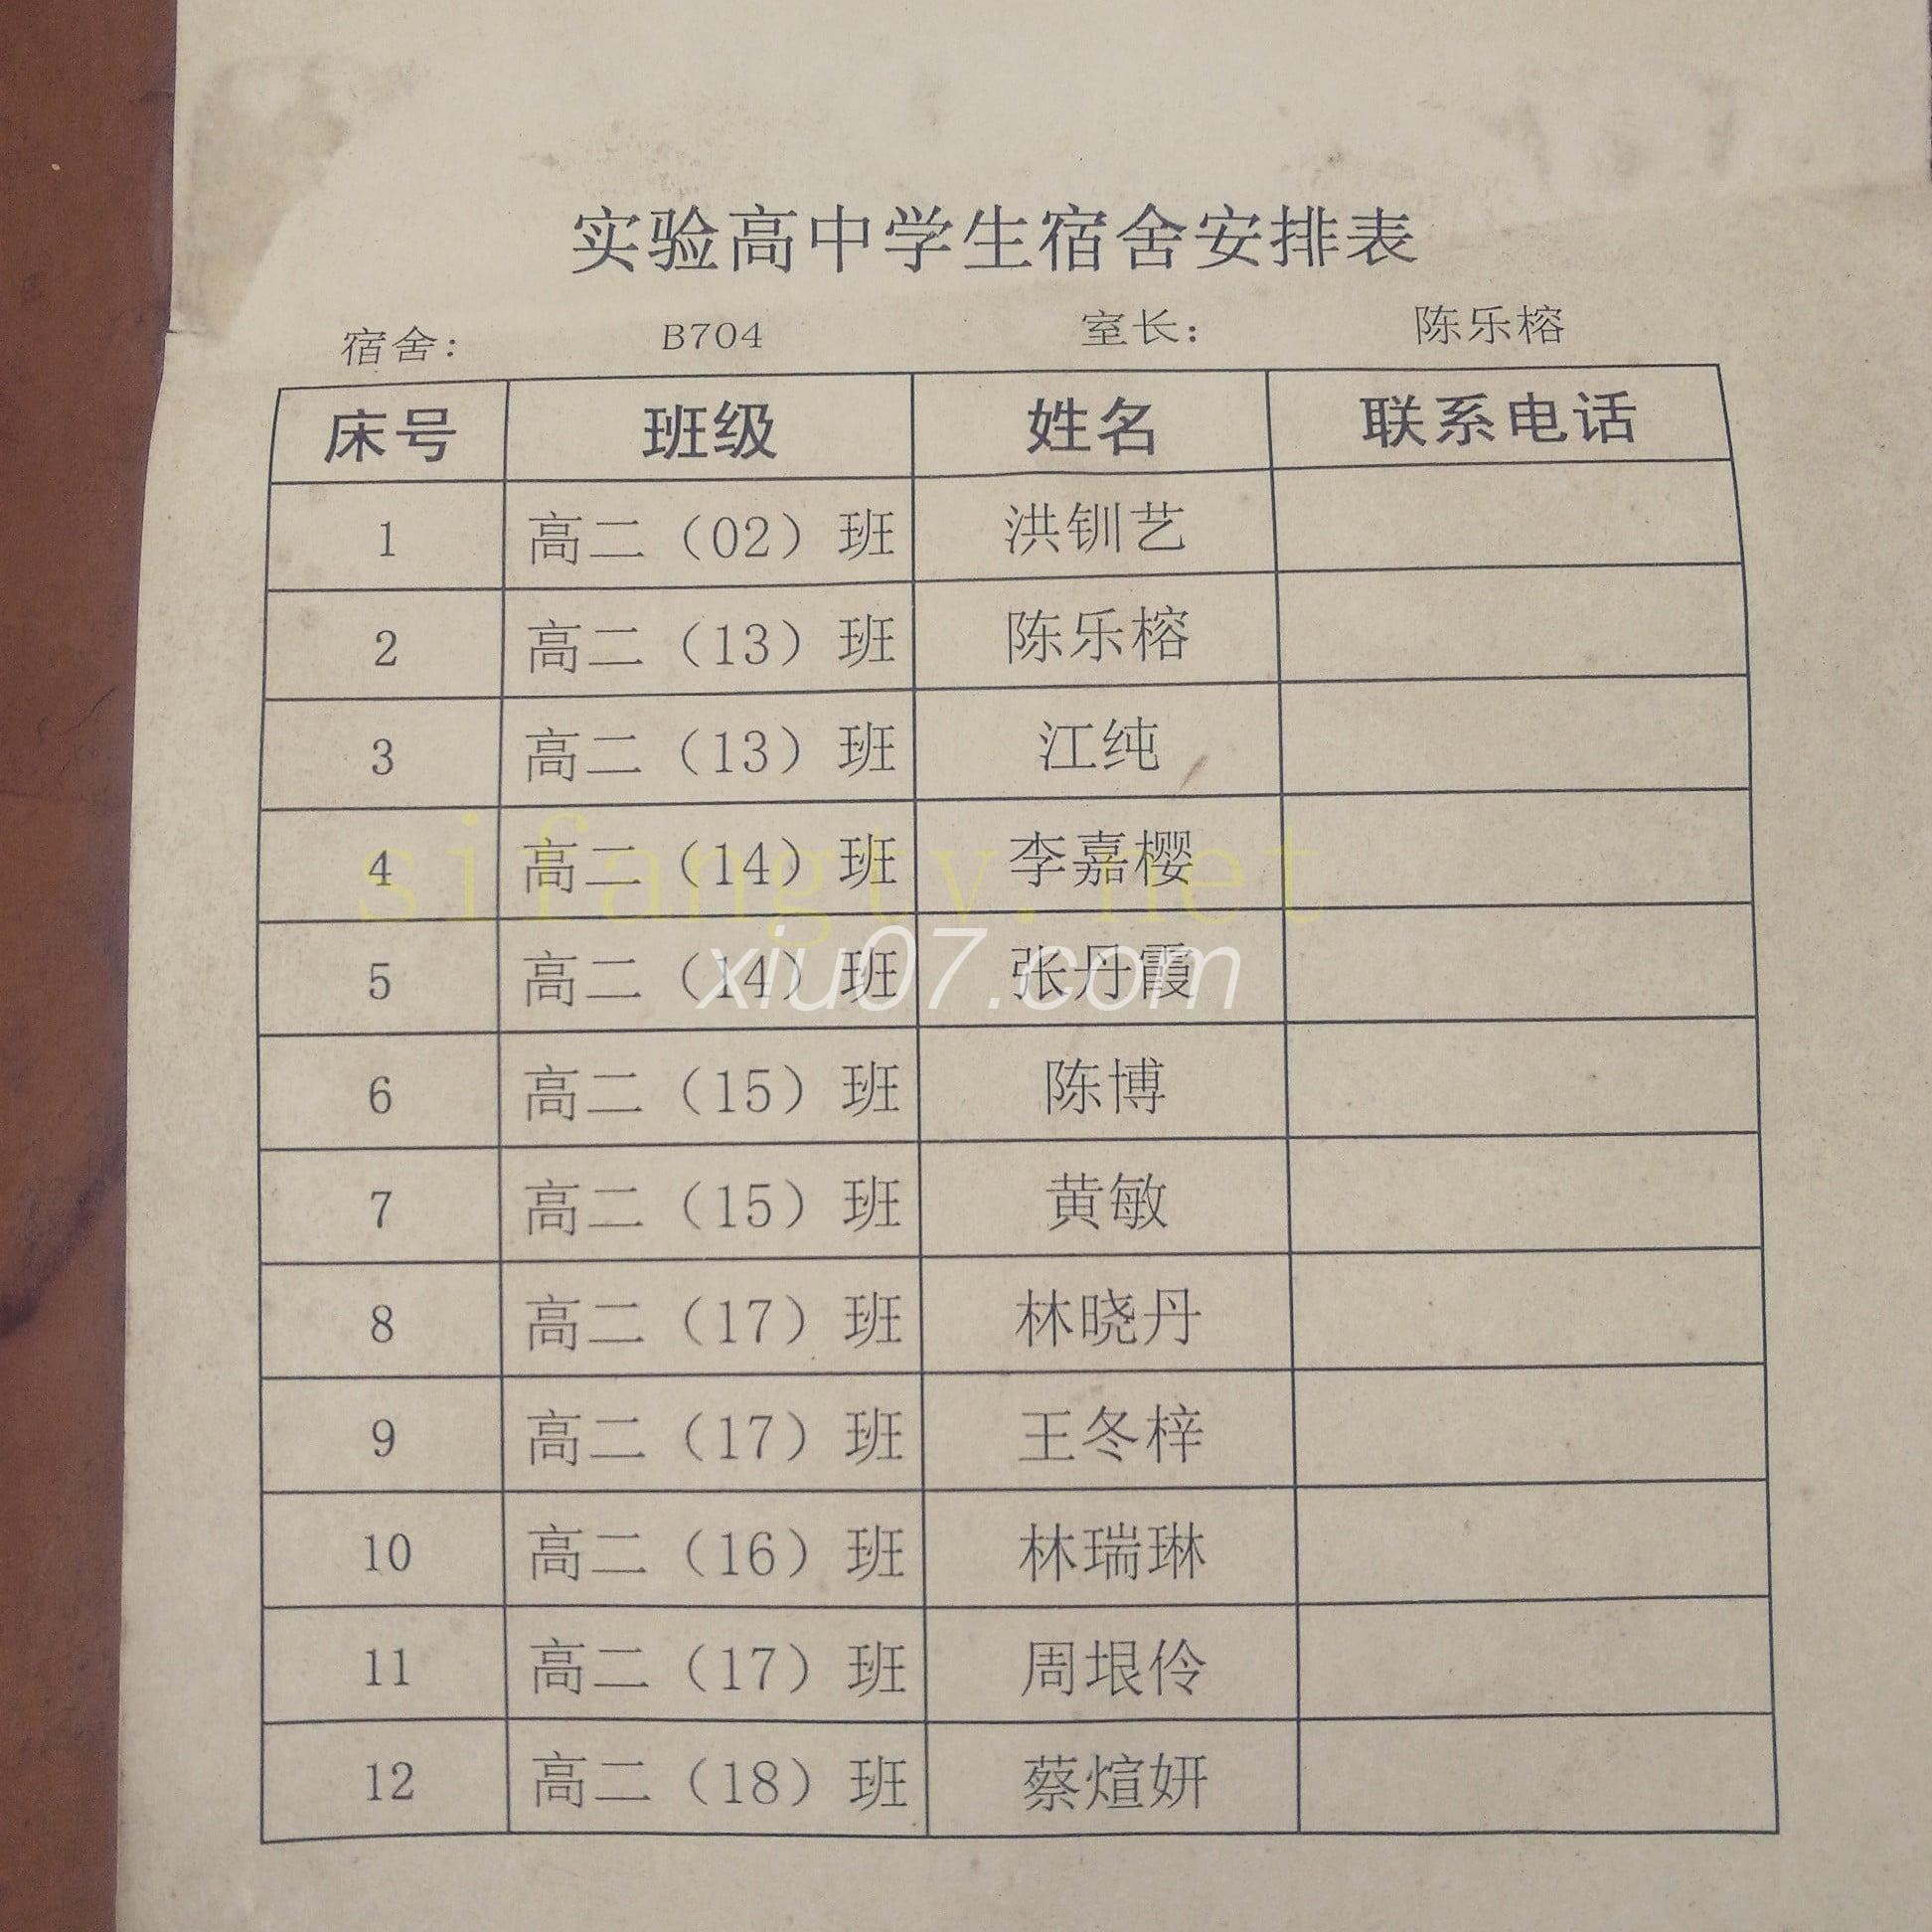 实验高中学生宿舍安排表
宿舍: B704 室长: 陈乐榕
床号 班级 姓名 联系电话
1 高二（02）班 洪钏艺
2 高二（13）班 陈乐榕
3 高二（13）班 江纯
4 高二（14）班 李嘉樱
sifangtv.net
5 高二（14）班 张丹霞
xiu07.com
6 高二（15）班 陈博
7 高二（15）班 黄敏
8 高二（17）班 林晓丹
9 高二（17）班 王冬梓
10 高二（16）班 林瑞琳
11 高二（17）班 周垠伶
12 高二（18）班 蔡煊妍